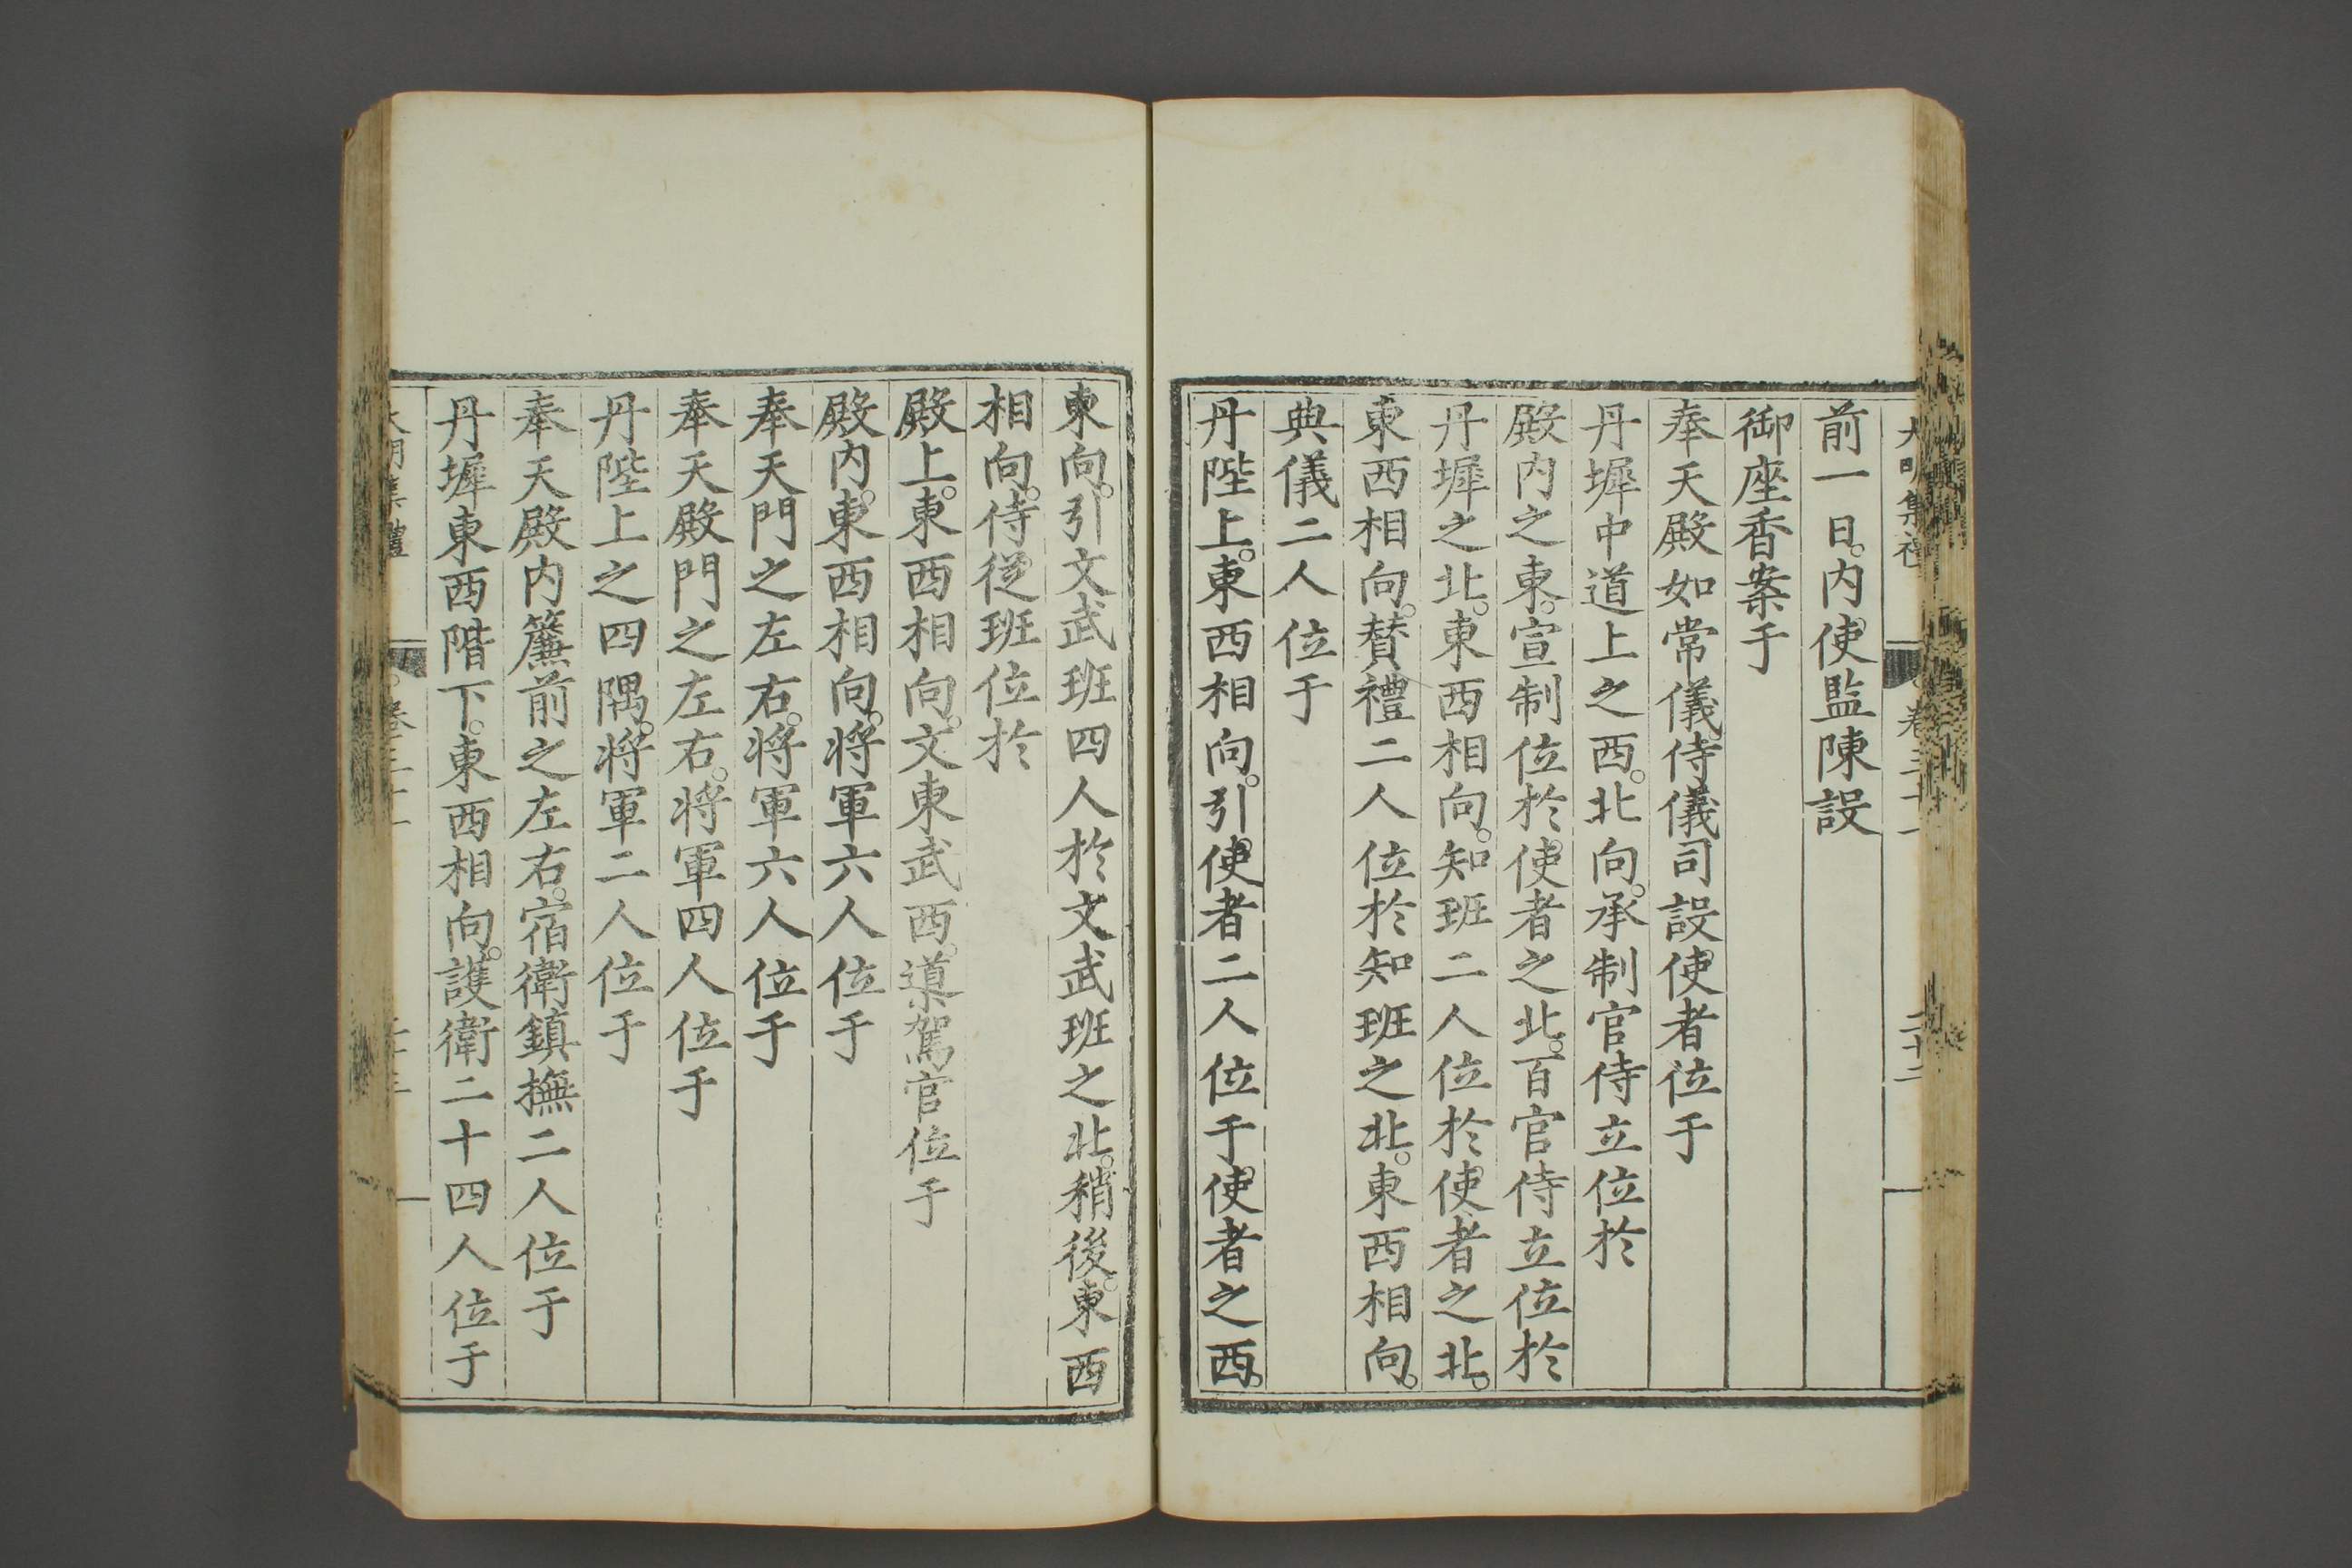 大明集禮 卷三十一 二十二
前一日。内使監陳設
御座香案于
奉天殿如常儀。侍儀司設使者位于
丹墀中道上之西。北向。承制官侍立位於
殿内之東。宣制位於使者之北。百官侍立位於
丹墀之北。東西相向。知班二人位於使者之北。
東西相向。贊禮二人位於知班之北。東西相向。
典儀二人位于
丹陛上。東西相向。引使者二人位于使者之西。
東向。引文武班四人於文武班之北。稍後。東西
相向。侍從班位於
殿上。東西相向。文東武西。導駕官位于
殿内。東西相向。將軍六人位于
奉天門之左右。將軍六人位于
奉天殿門之左右。將軍四人位于
丹陛上之四隅。將軍二人位于
奉天殿内簾前之左右。宿衛鎮撫二人位于
丹墀東西階下。東西相向。護衛二十四人位于
大明集禮 卷三十一